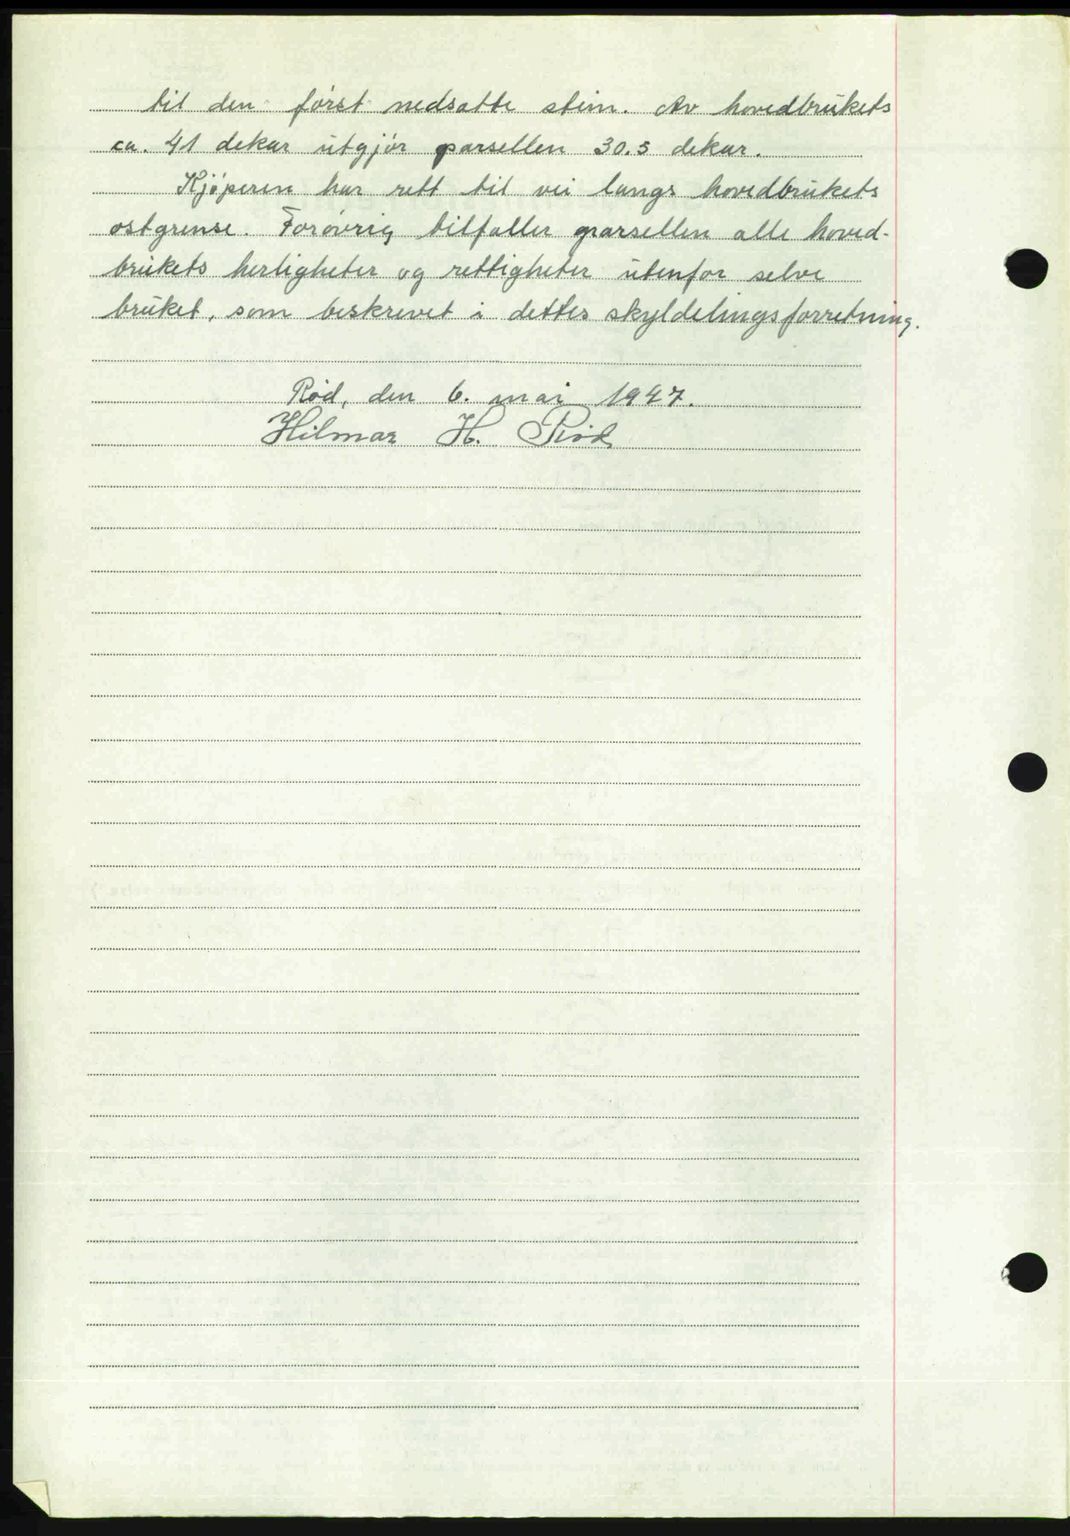 til den først nedsatte stein. Av hovedbrukets
ca. 41 dekar utgjør parsellen 30.5 dekar.
Kjøperen har rett til vei langs hovedbrukets
østgrense. Forøvrig tilfaller parsellen alle hoved-
brukets herligheter og rettigheter utenfor selve
bruket, som beskrevet i dettes skyldelingsforretning.
Rød, den 6. mai 1947.
Hilmar H. Rød